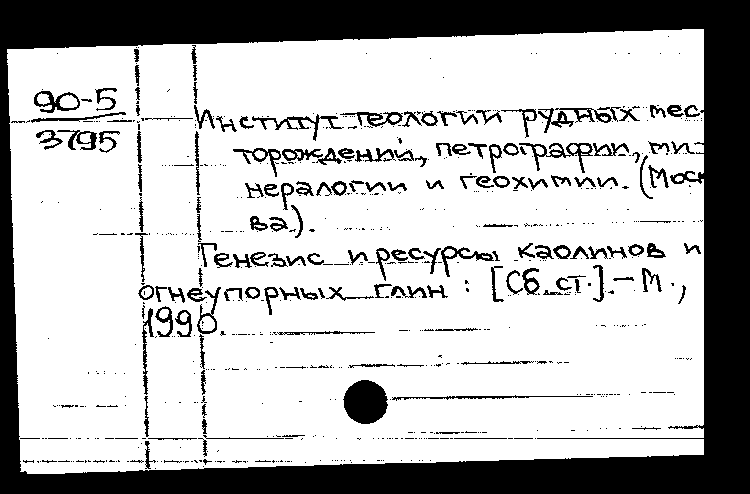 90-5
3795
Институт геологии рудных мес-
торождений, петрографии, ми-
нералогии и геохимии. (Моск
ва).
Генезис и ресурсы каолинов и
огнеупорных глин : [Сб. ст.]. - М.,
1990.